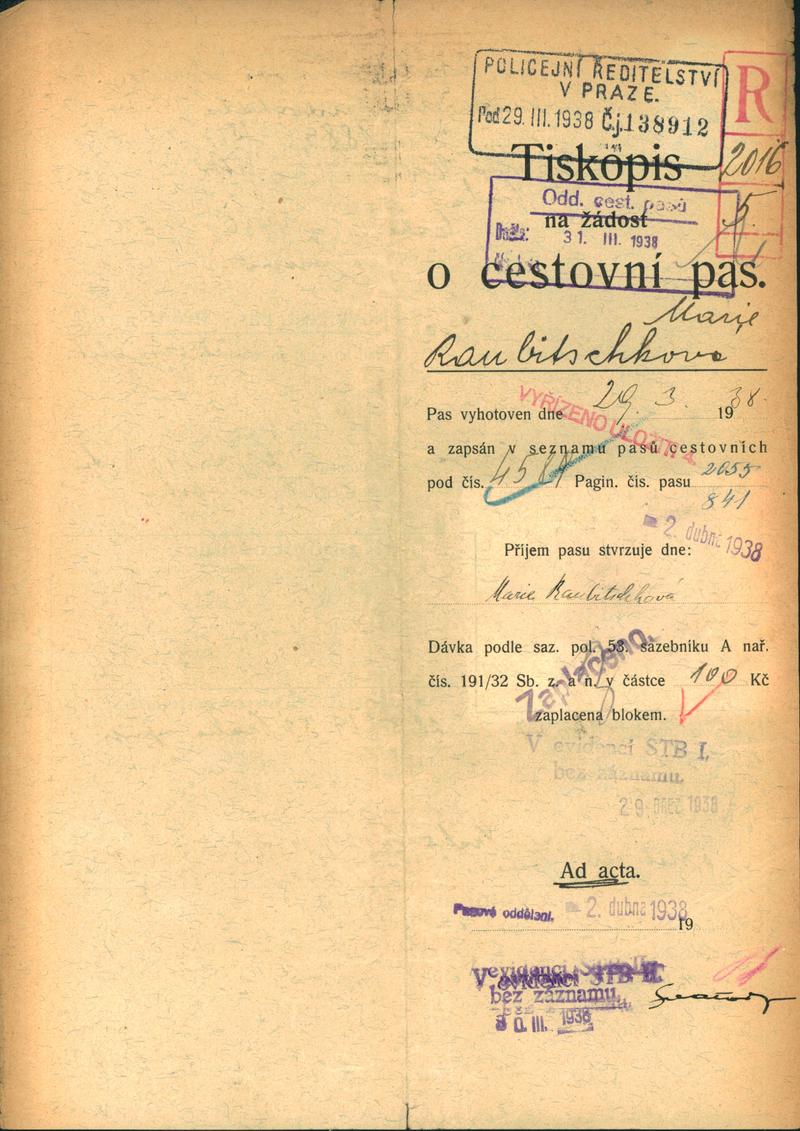 POLICEJNÍ ŘEDITELSTVÍ
V PRAZE.
Pod 29. III. 1938 Č.j. 138912
R
Tiskopis
2016
Odd. cest. pasů
5.
na žádost
Došlo:
31. III. 1938
o cestovní pas.
Marie
Raubitschkova
Pas vyhotoven dne 29. 3. 1938.
VYŘÍZENO ULOŽIT
a zapsán v seznamu pasů cestovních
pod čís. 4587 Pagin. čís. pasu 2655
841
2. dubna 1938
Příjem pasu stvrzuje dne:
Marie Raubitschková
Dávka podle saz. pol. 53. sazebníku A nař.
čís. 191/32 Sb. z. a n. v částce 100 Kč
Zaplaceno.
zaplacena blokem.
V evidenci STB I,
bez záznamu.
29. břez. 1938
Ad acta.
Pasové oddělení. 2. dubna 1938
19
V evidenci STB II.
bez záznamu.
30. III. 1938